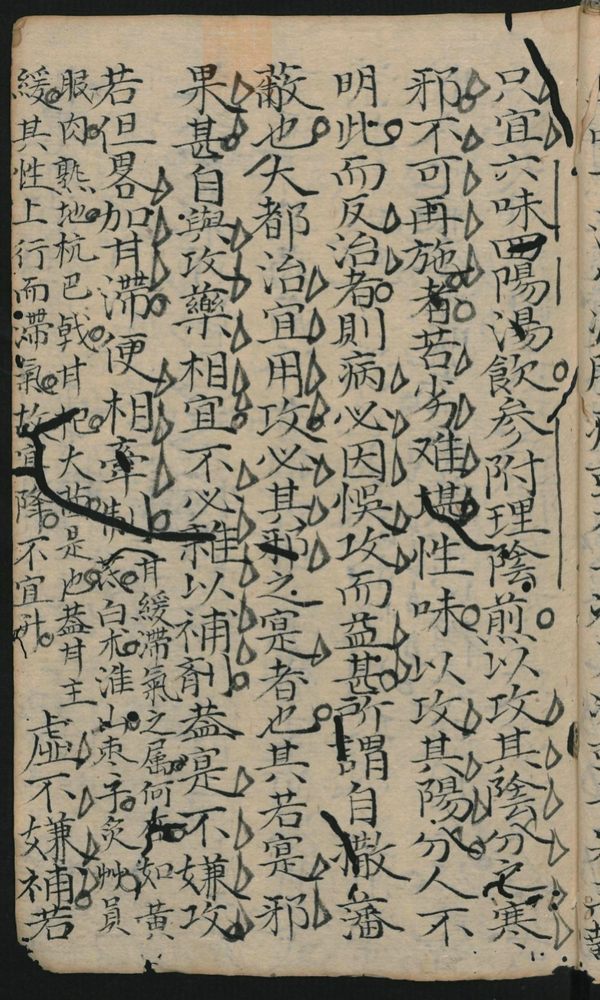 只宜六味四陽湯飲參附理陰煎以攻其陰分之寒
邪不可再施者若劣难堪性味以攻其陽分人不
明此而反治者則病必因悞攻而益甚所謂自撒藩
蔽也大都治宜用攻必其邪之寔者也其若寔邪
果甚自與攻藥相宜不必雜以補劑蓋寔不嫌攻
若但畧加甘滞便相牽制
甘緩滞氣之属何在如黄
茋白朮淮山棗子炙艸員
服肉熟地杭巴戟甘杞大
是也蓋甘主
緩其性上行而滞氣故宜降不宜升
虛不嫌補若